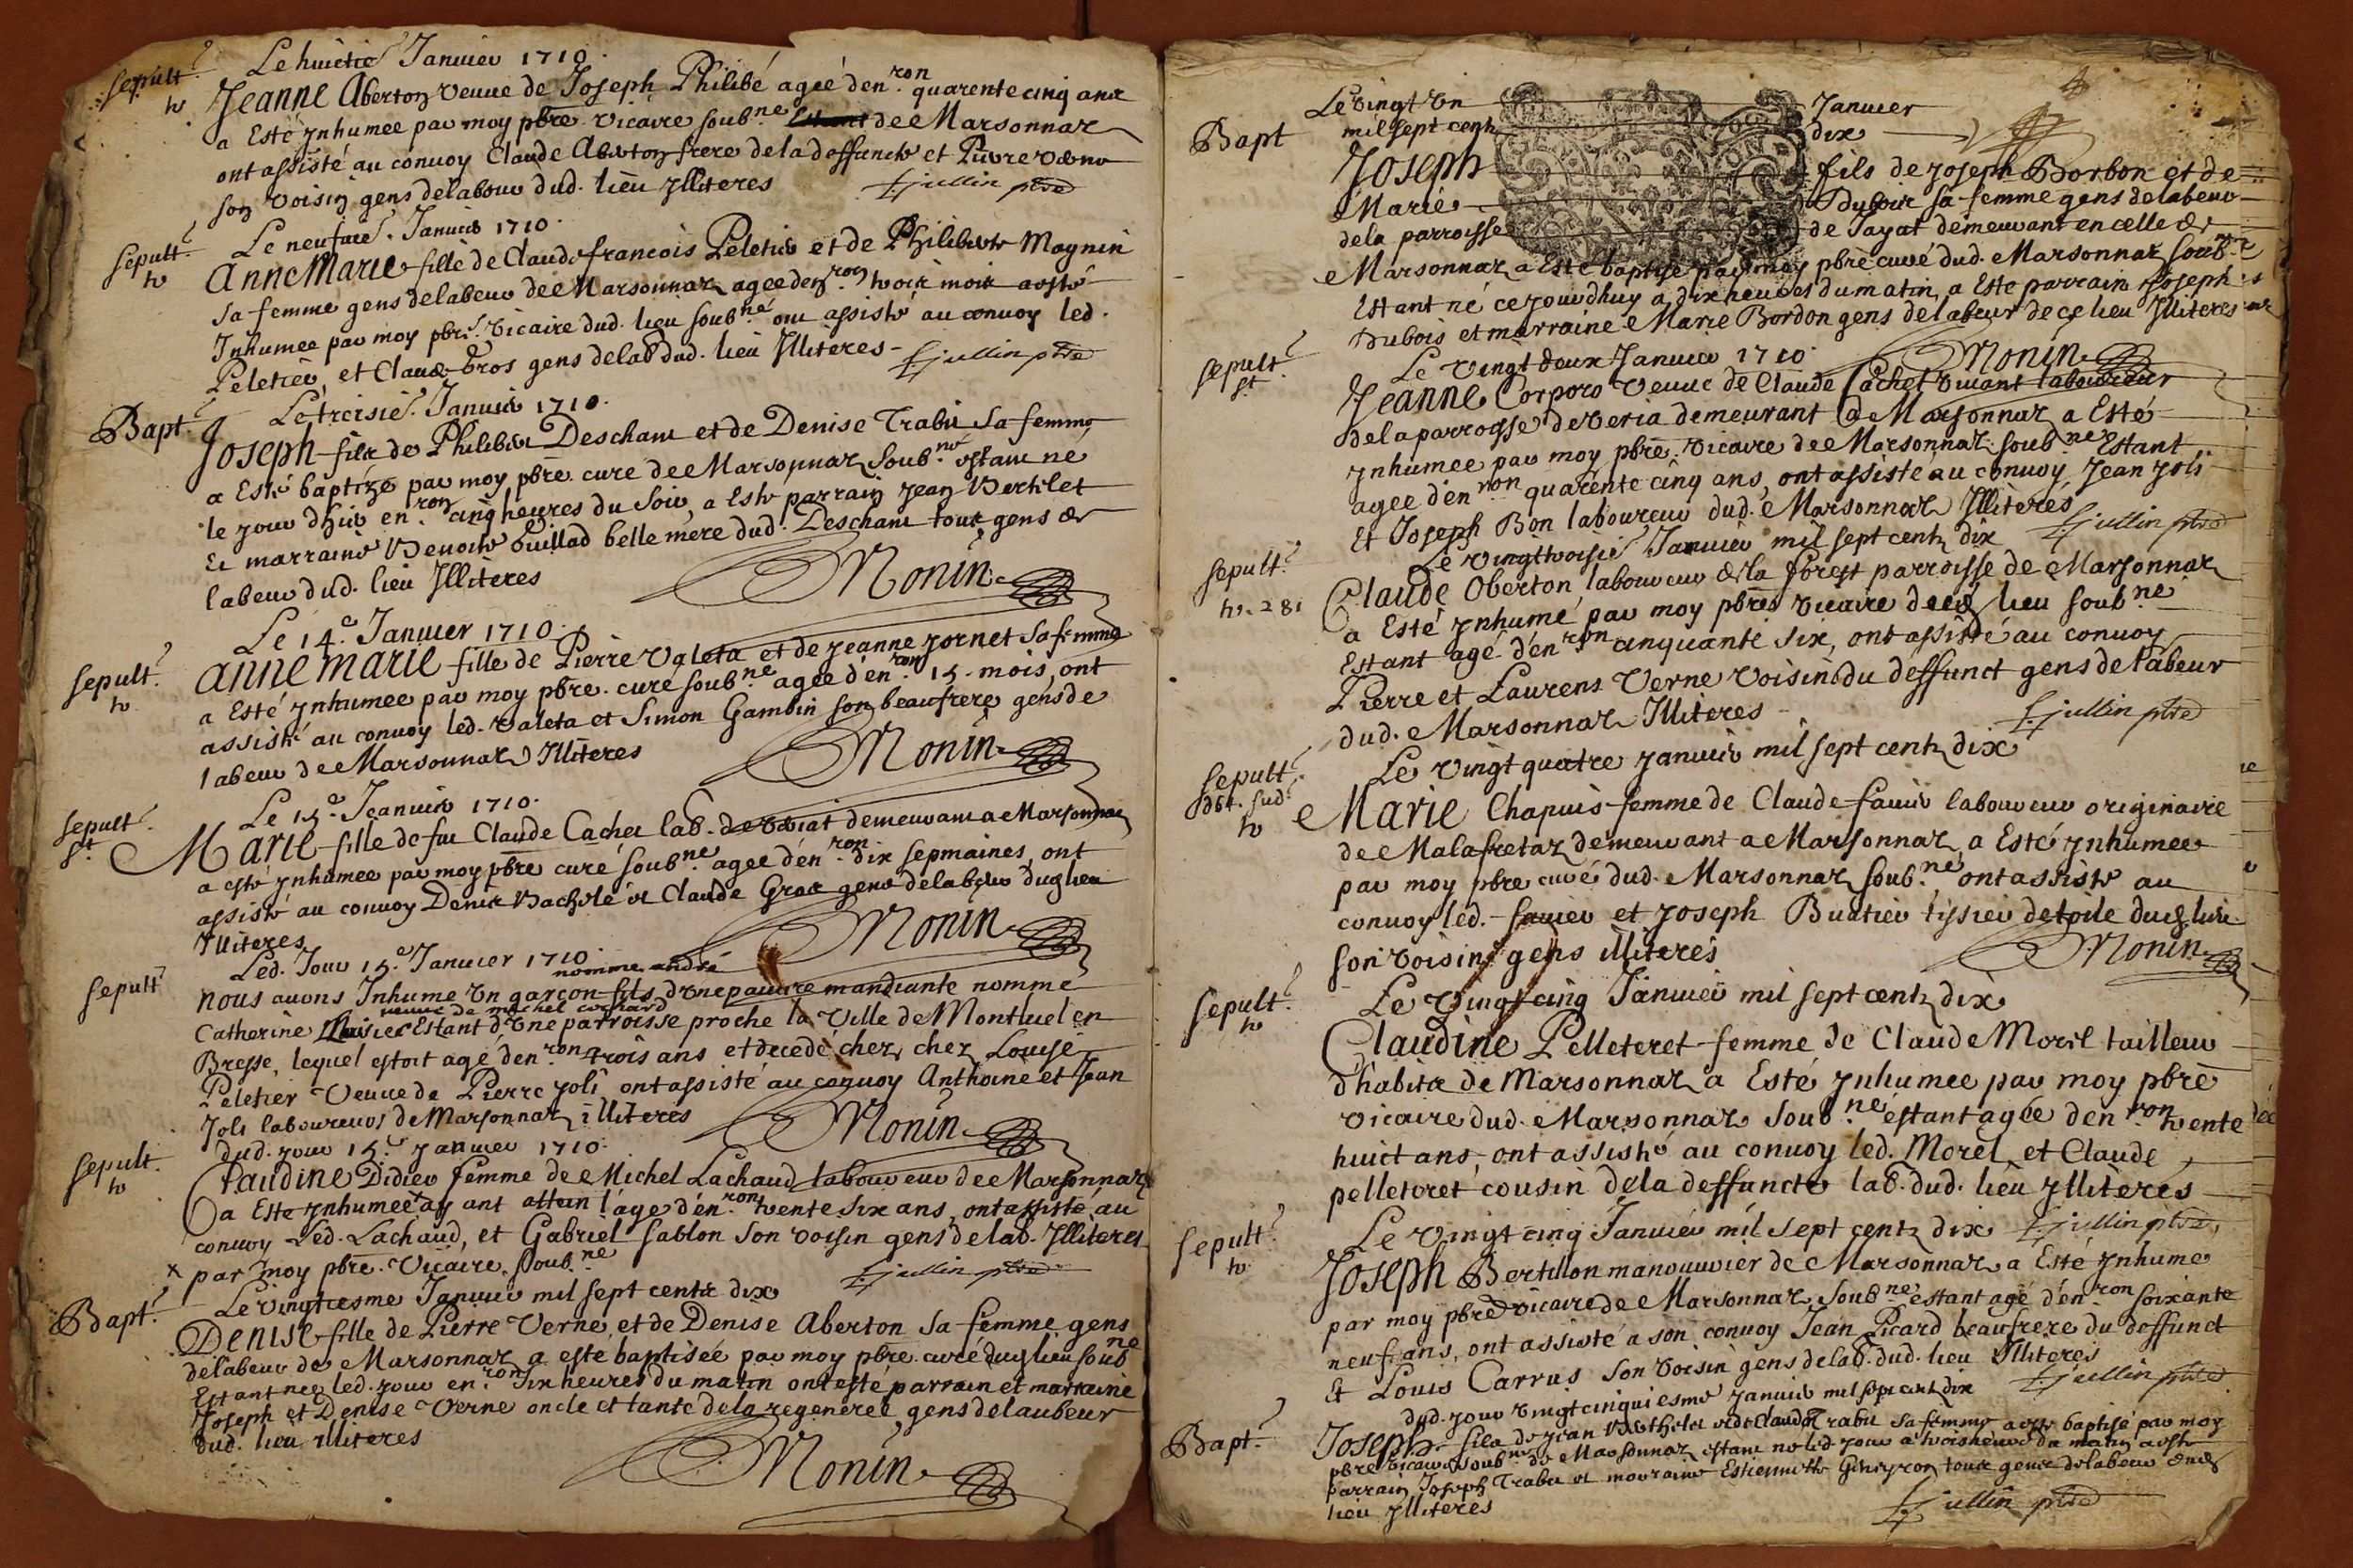 Sepult.
Le huictie Januier 1710.
Jeanne Aberton veuue de Joseph Philibé agée den.ron quarente cinq ans
a Esté ynhumee par moy pbre. vicaire soub.ne de Marsonnaz
ont assisté au conuoy Claude Aberton frere de la deffuncte et Pierre Verne
son voisin gens de labour dud. lieu Jlliteres
f. jullin ptre
Sepult.
Le neufuie. Januier 1710.
Anne Marie fille de Claude francois Peletier et de Philiberte Mognin
sa femme gens de labeur de Marsonnaz agee den.ron trois mois a esté
Jnhumee par moy pbre. vicaire dud. lieu soub.né ont assisté au conuoy led.
Peletier, et Claude Gros gens de lab dud. lieu Jlliteres
f. jullin ptre
Bapt.
Le treisie. Januier 1710.
Joseph fils de Philibert Descham et de Denise Trabu sa femme
a Esté baptizé par moy pbre. curé de Marsonnaz soub.né estant né
le jour dhui en.ron cinq heures du soir, a Esté parrain Jean Bertelet
Et marraine Benoite Guillad belle mere dud. Descham tous gens de
labeur dud. lieu Jlliteres
Monin
Sepult.
Le 14.e Januier 1710.
Anne Marie fille de Pierre Valeta et de jeanne jornet sa femme
a Esté ynhumee par moy pbre. curé soub.ne agee d'en.ron 15. mois, ont
assisté au conuoy led. Valeta et Simon Gambin son beaufrere gens de
labeur de Marsonnaz Jlliteres
Monin
Sepult.
Le 15.e Januier 1710.
Marie fille de feu Claude Cachet lab. de veriat demeurant a Marsonnaz
a esté ynhumee par moy pbre curé soub.ne agee d'en.ron dix sepmaines, ont
assisté au conuoy Denis Bachelé et Claude Gros gens de labeur dud lieu
Jlliteres
Monin
Sepult
Led. Jour 15.e Januier 1710
nomme andré
nous auons Jnhume vn garcon fils d'vne pauure mandiante nommé
veuue de michel
Catherine Estant d'vne parroisse proche la ville de Montluel en
Bresse, lequel estoit agé den.ron trois ans et decedé chez chez Louise
Peletier veuue de Pierre joli ont assisté au conuoy Anthoine et Jean
Joli laboureurs de Marsonnaz illiteres
Monin
Sepult.
dud. jour 15.e januier 1710.
Claudine Didier femme de Michel Lachaud laboureur de Marsonnaz
a Este ynhumee x ay ant attein l'age d'en.ron trente six ans, ont assisté au
conuoy Led. Lachaud, et Gabriel sablon son voisin gens de lab. Jlliteres
x par moy pbre. vicaire soub.ne
f. jullin ptre
Bapt.
Le vingtiesme Januier mil sept cents dix
Denise fille de Pierre Verne, et de Denise Aberton sa femme gens
de labeur de Marsonnaz a este baptisée par moy pbre. curé dud lieu soub.ne
Estant nee led. jour en.ron six heures du matin ont esté parrain et marraine
Joseph et Denise Verne oncle et tante de la regeneree, gens de laubeur
dud. lieu illiteres
Monin
4
Bapt
Le vingt vn Januier
mil sept cents dix
Joseph fils de Joseph Borbon et de
Marie Dubois sa femme gens de labeur
de la parroisse de Jayat demeurant en celle de
Marsonnaz a Esté baptisé par moy pbre curé dud. Marsonnaz soub.ne
Estant né ce jourdhuy a dix heures du matin, a Esté parrain Joseph
Dubois et marraine Marie Bordon gens de labeur de ce lieu Jlliteres
Monin
Sepult.
Le vingt deux Januier 1710.
Jeanne Corporo veuue de Claude Cachet viuant laboureur
de la parroisse de veria demeurant a Marsonnaz a Esté
ynhumee par moy pbre. vicaire de Marsonnaz soub.ne Estant
agee d'en.ron quarente cinq ans, ont assisté au conuoy Jean joli
Et Joseph Bon laboureur dud. Marsonnaz Jlliteres
f. jullin ptre
Sepult.
Le vingttroisie Januier mil sept cents dix
Claude Oberton laboureur de la forest parroisse de Marsonnaz
a Esté ynhumé par moy pbre vicaire de ce lieu soub.né
Estant agé d'en.ron cinquante six, ont assisté au conuoy
Pierre et Laurens Verne voisins du deffunct gens de labeur
dud. Marsonnaz Jlliteres
f. jullin ptre
Sepult.
Le vingt quatre januier mil sept cents dix
Marie Chapuis femme de Claude fauier laboureur originaire
de Malafretaz demeurant a Marsonnaz a Esté ynhumee
par moy pbre curé dud. Marsonnaz soub.né ont assisté au
conuoy led. fauier et joseph Budtier tissier de toile dud lieu
son voisin gens illiteres
Monin
Sepult.
Le vingt cinq Januier mil sept cents dix
Claudine Pelleteret femme de Claude Morel tailleur
d'habits de Marsonnaz a Esté ynhumee par moy pbre
vicaire dud. Marsonnaz soub.né estant agée den.ron trente
huict ans, ont assisté au conuoy led. Morel et Claude
pelleteret cousin de la deffuncte lab. dud. lieu Jlliteres
f. jullin ptre
Sepult.
Le vingt cinq Januier mil sept cents dix
Joseph Bertillon manouurier de Marsonnaz a Esté ynhume
par moy pbre vicaire de Marsonnaz soub.ne estant agé d'en.ron soixante
neuf ans, ont assisté a son conuoy Jean Picard beaufrere du deffunct
Et Louis Carrus son voisin gens de lab. dud. lieu Jlliteres
f. jullin ptre
Bapt.
dud. jour vingt cinquiesme januier mil sept cent dix
Joseph fils de jean Berthelet et de Claude Trabu sa femme a esté baptisé par moy
pbre vicaire soub.né de Marsonnaz estant né led jour a trois heures du matin a esté
parrain Joseph Trabu et marraine Estiennette tous gens de labeur dud
lieu Jlliteres
f. jullin ptre